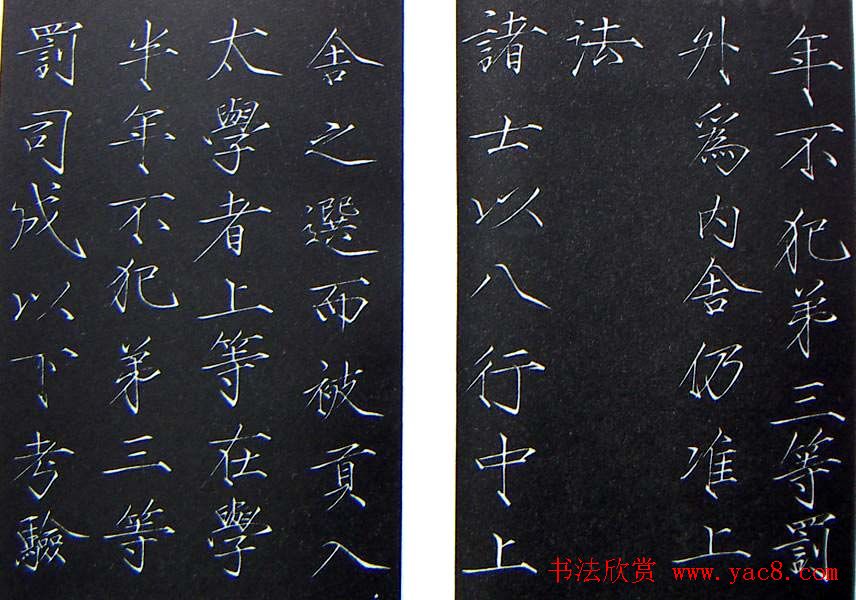 年不犯弟三等罰
外為内舍仍准上
法
諸士以八行中上
舍之選而被貢入
太學者上等在學
半年不犯弟三等
罰司成以下考驗
书法欣赏 www.yac8.com